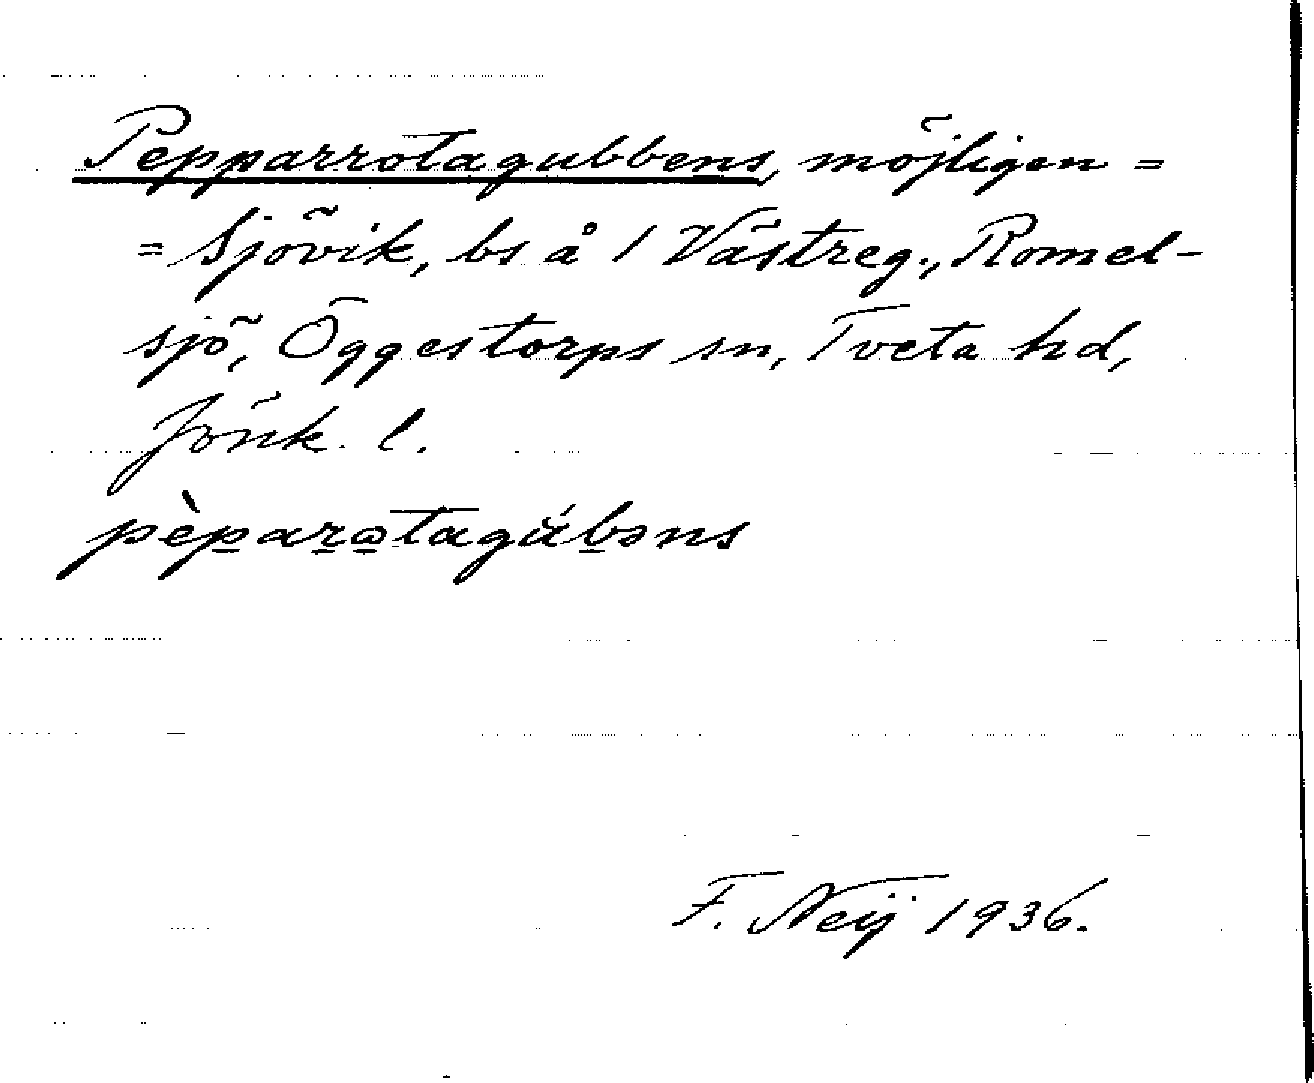 Pepparrotagubbens, möjligen =
= Sjövik, bs å 1 Västreg., Romel-
sjö, Öggestorps sn, Tveta hd,
Jönk. l.
pèparotagúbəns
F. Neij 1936.